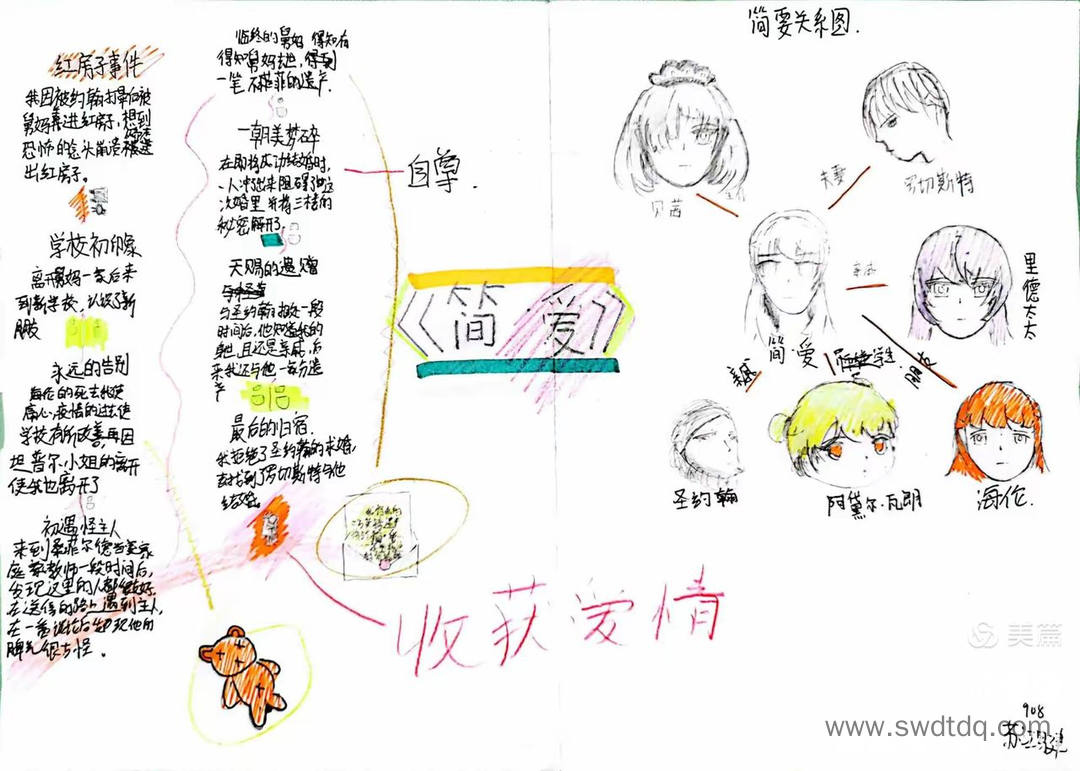 红房子事件
我因被约翰打晕后被
舅妈弄进红房子,想到
恐怖的念头
出红房子。
学校初印象
离开舅妈一家后来
到新学校,认识了新
朋友
永远的告别
海伦的死去使我
伤心,疫情的过去使
学校有所改善,再因
坦普尔小姐的离开
使我也离开了
初遇怪主人
来到桑菲尔德当家
庭教师一段时间后,
发现这里的人都很好,
在送信的路上遇到主人,
在一番谈论后发现他的
脾气很古怪。
临终的舅妈 得知有
得知舅妈去世,得到
一笔不菲的遗产.
一朝美梦碎
在即将成功结婚时,
一人冲出来阻碍了这
次婚里 并将三楼的
秘密解开了.
天赐的遗赠
与圣约翰相处一段
时间后,他知道我的
身世,且还是亲戚,后
来我还与他一起分遗
产
最后的归宿.
我拒绝了圣约翰的求婚,
去找到了罗切斯特与他
结婚
自尊.
《简爱》
收获爱情
简要关系图.
贝茜
夫妻
罗切斯特
里德太太
简爱
亲戚
学生
朋友
圣约翰
阿黛尔·瓦朗
海伦.
美篇
908
www.swdtdq.com